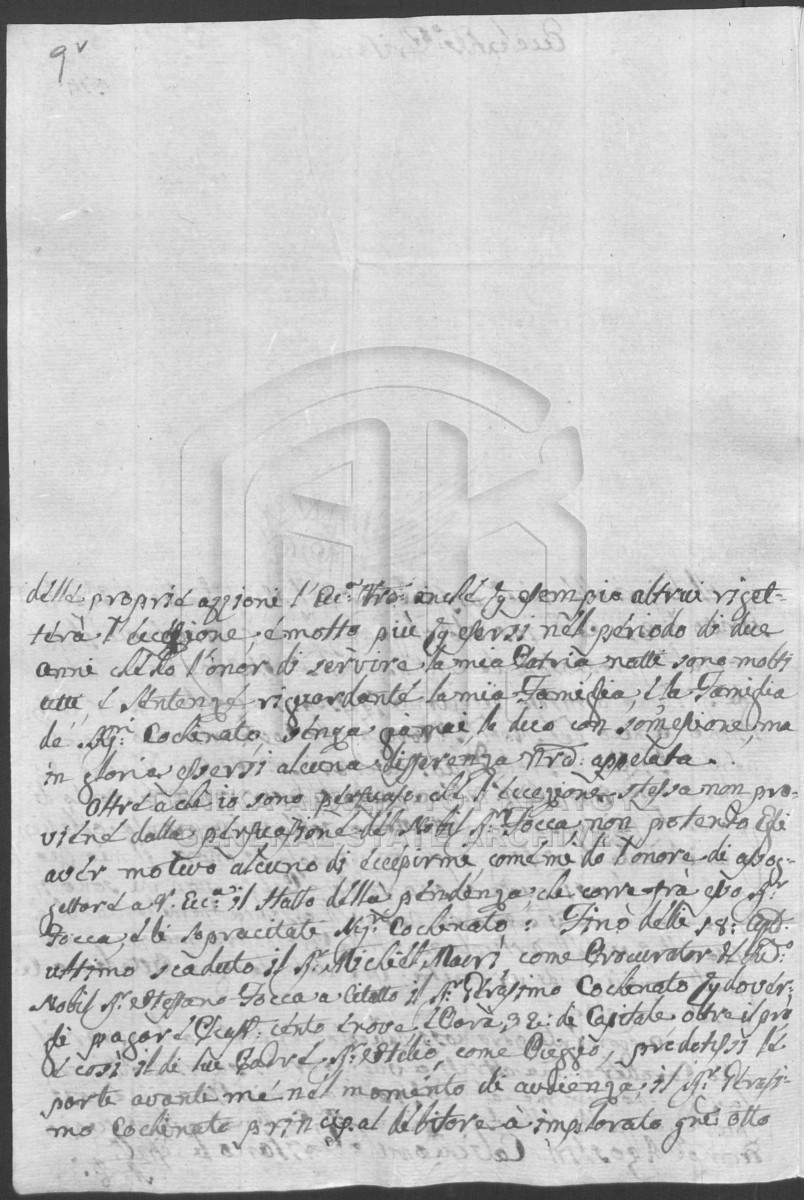 9v
delle proprie azzioni l'Ecc:mo Tro: anche per esempio altrui riget-
terà l'eccezione, è molto più per esersi nel periodo di due
anni che ho l'onor di servire la mia Patria natti sono molti
atti, e Sentenze riguardante la mia Famiglia, e la Famiglia
de Sig:ri Coclinato, senza giamai, lo dico con somesione, ma
in gloria essersi alcuna differenza appelata.
Oltre à che io sono persuaso che l'eccezione stessa non pro-
viene dalla persuasione del Nobil Sr: Focca, non potendo Egli
aver motivo alcuno di eccepirme, come mi do l'onore di asog-
gettare a V. Ecc:a il Statto della pendenza, che corre frà esso Sr:
Focca, e li sopracitate Sig:ri Coclinato: Finò delli 18:
ultimo scaduto il Sr: Michiel Mauri come Procurator del
Nobil Sr: Stessano Focca a Citatto il Sr: Gerasimo Coclinato per dover-
si pagare cento trova e Parà 32: di Capitale oltre il prò
e così il di lui Padre Sr: Stelio, come Pieggio,
parte avanti me nel momento di audienza, il Sr: Gerasi-
mo Coclinato principal debitore à implorato otto
KRATOU
GENERAL STATE ARCHIVES